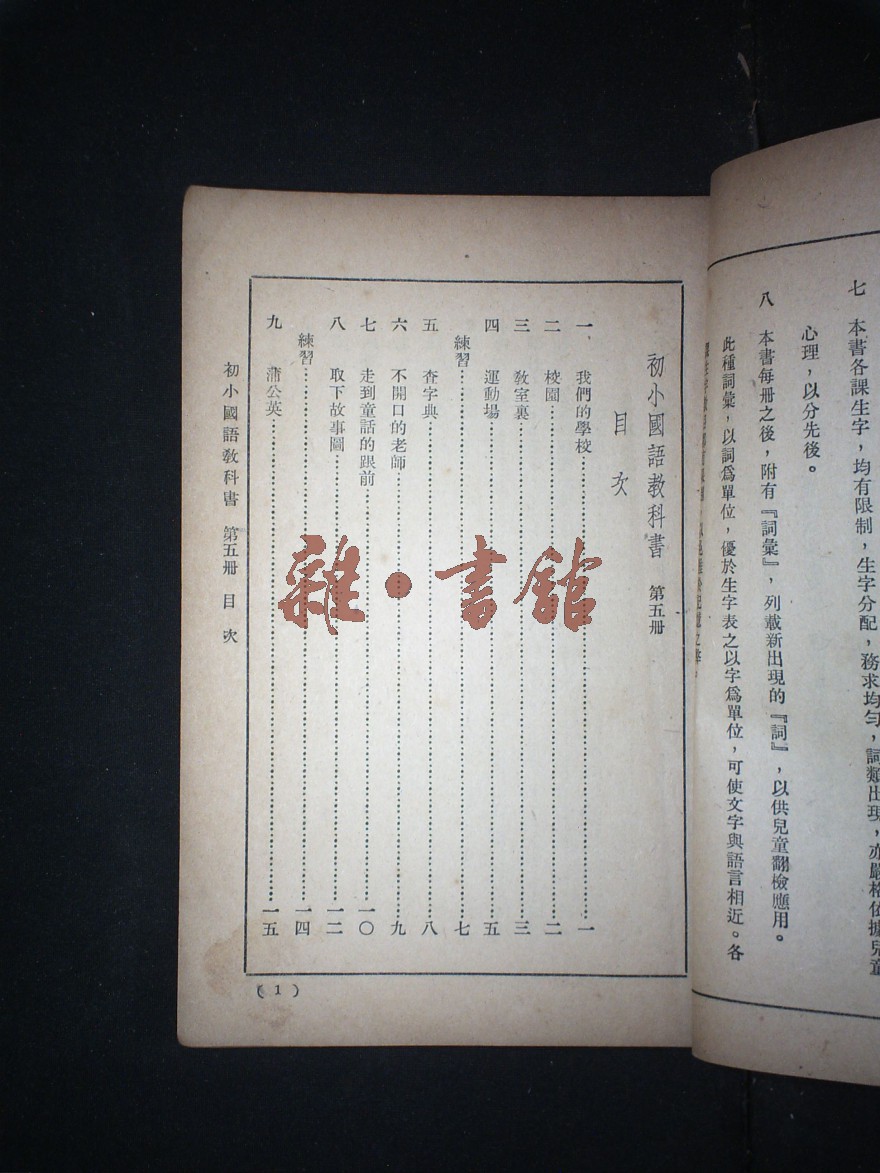 七 本書各課生字，均有限制，生字分配，務求均勻，詞類出現，亦嚴格依據兒童
心理，以分先後。
八 本書每册之後，附有『詞彙』，列載新出現的『詞』，以供兒童翻檢應用。
此種詞彙，以詞爲單位，優於生字表之以字爲單位，可使文字與語言相近。各
初小國語教科書 第五册
目次
一、 我們的學校 一
二 校園 二
三 教室裏 三
四 運動場 五
練習 七
五 查字典 八
六 不開口的老師 九
七 走到童話的跟前 一〇
八 取下故事圖 一二
練習 一四
九 蒲公英 一五
初小國語教科書 第五册 目次
(1)
雜·書館